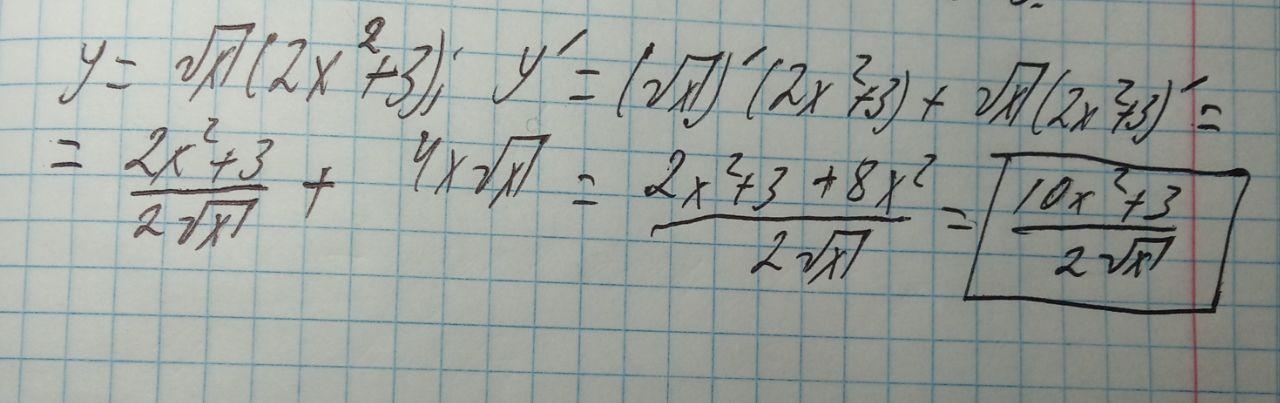 y = √x (2x²+3); y′ = (√x)′ (2x²+3) + √x (2x²+3)′ =
= (2x²+3)/(2√x) + 4x√x = (2x²+3+8x²)/(2√x) = (10x²+3)/(2√x)